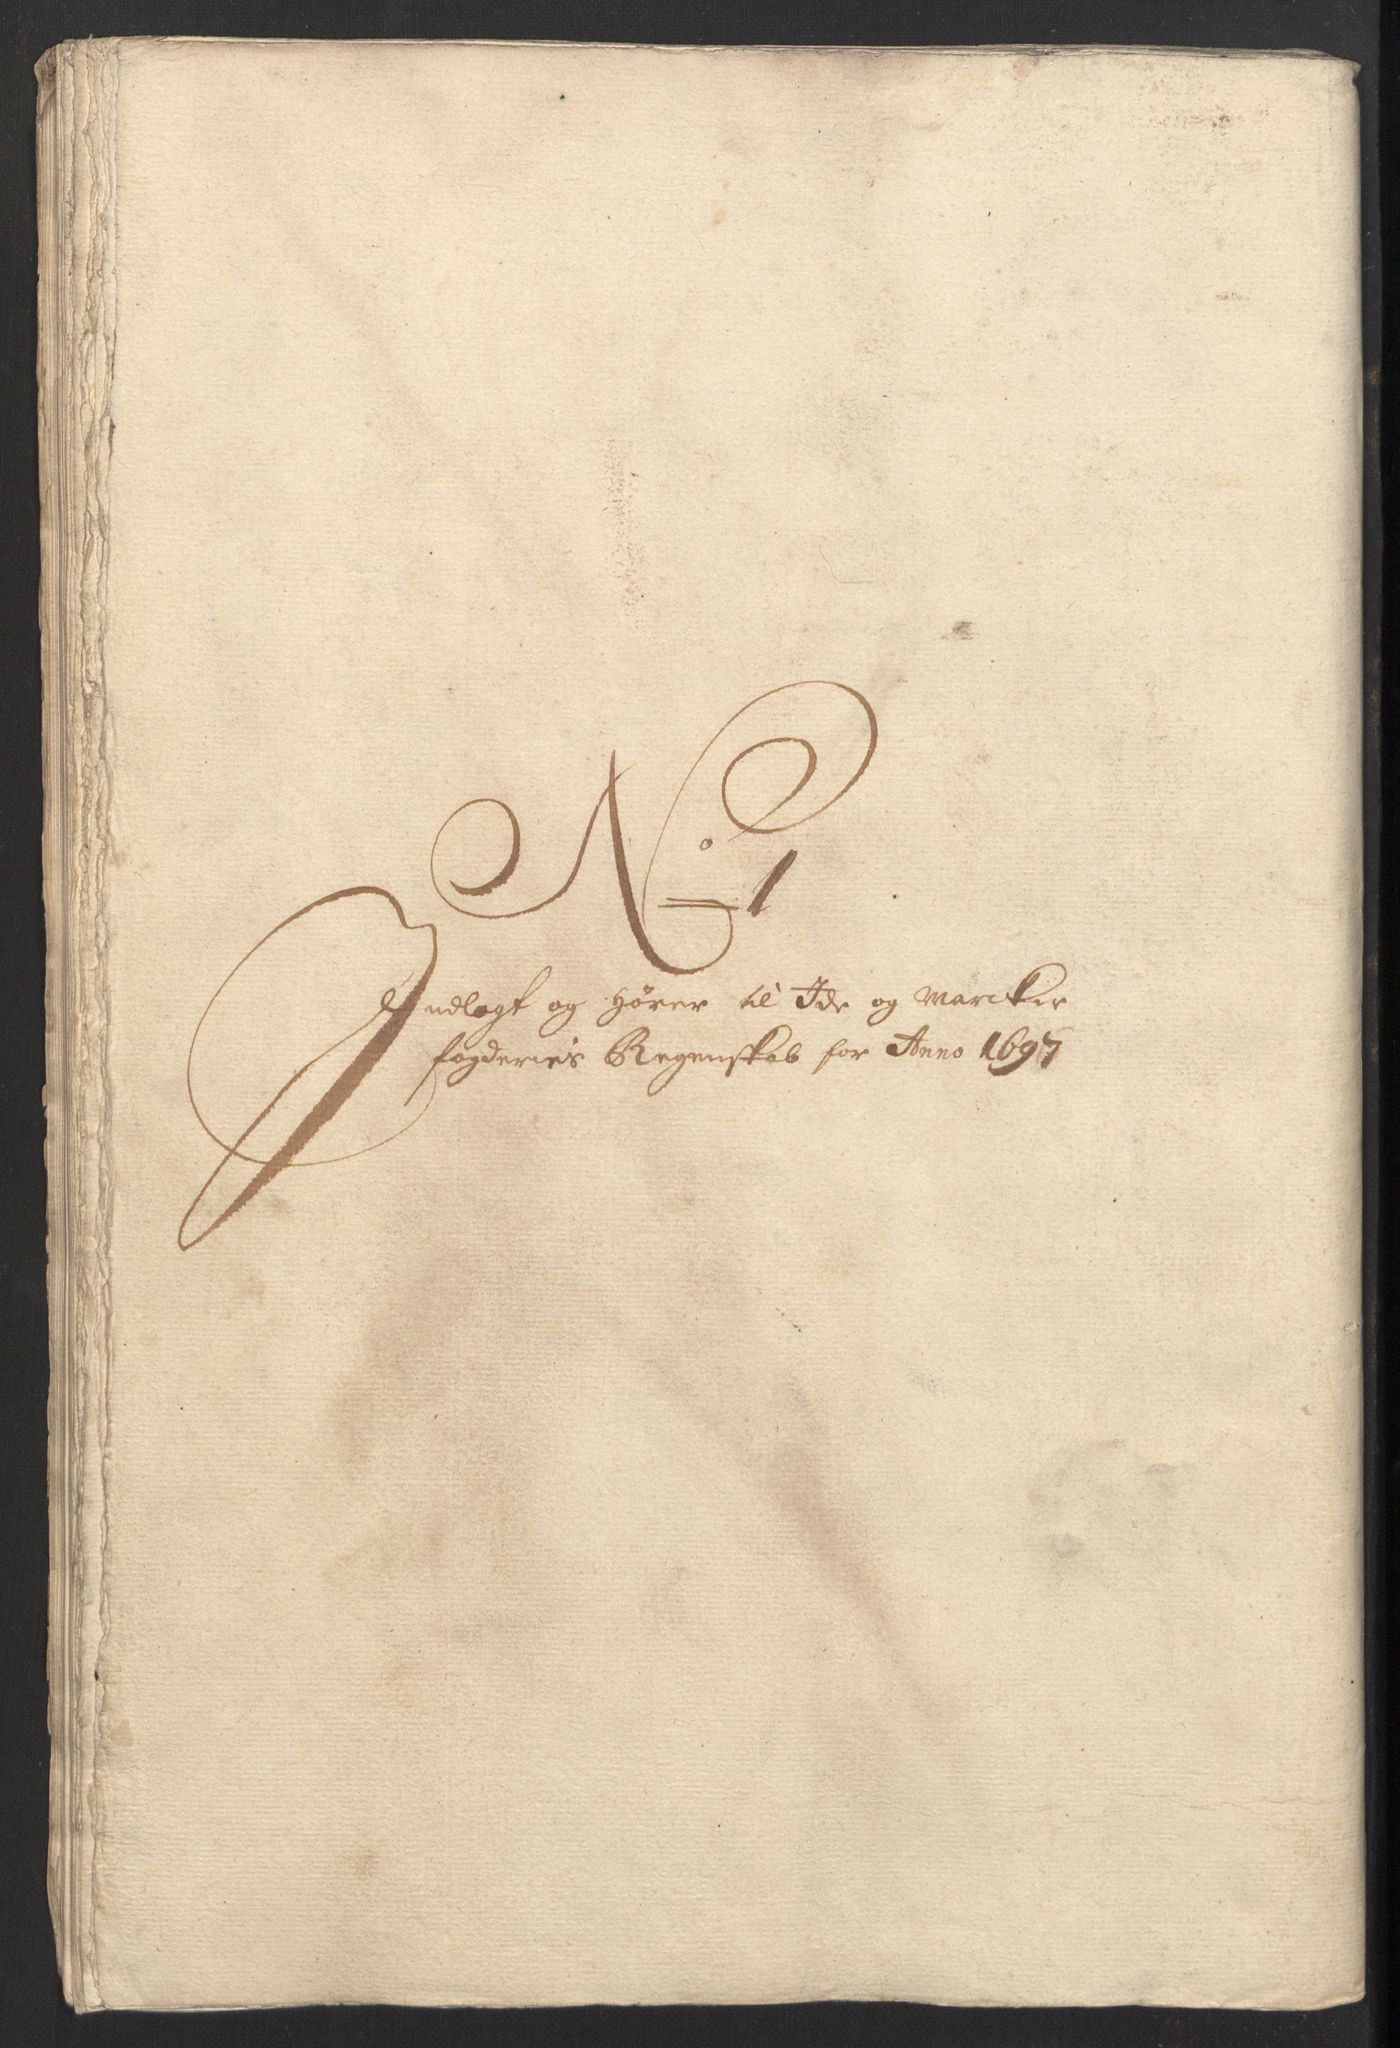 No 1
Indlagt og Hører til Ide og Marcker
fogderies Regenskab for Anno 1697